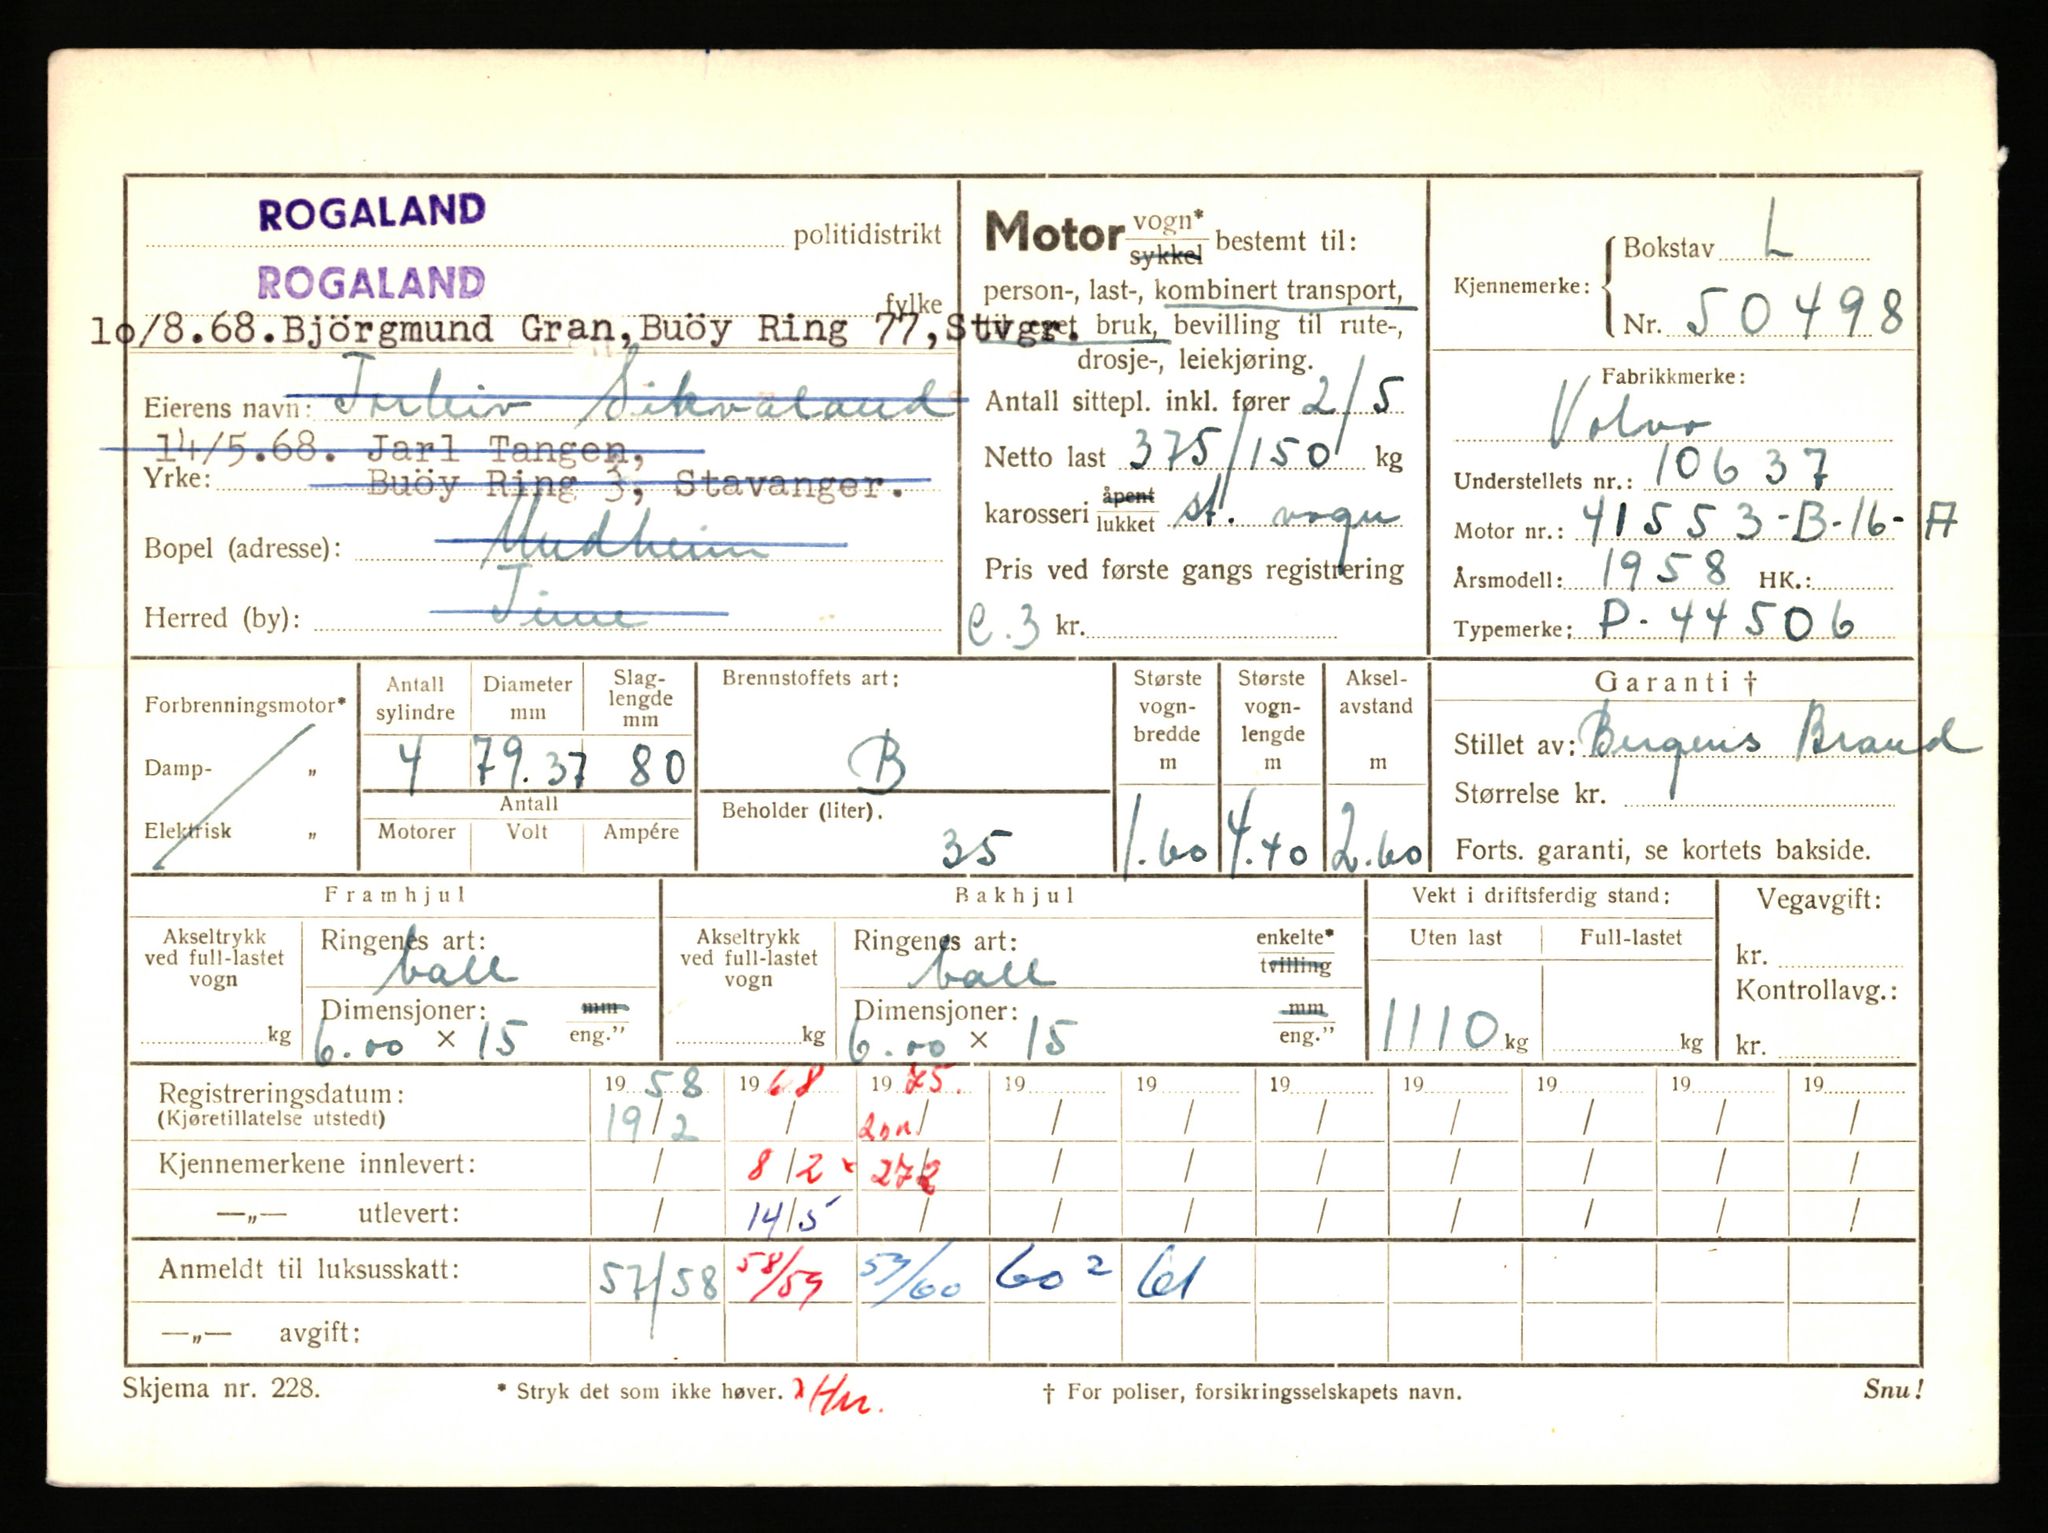 ROGALAND politidistrikt
ROGALAND fylke
10/8.68.Björgmund Gran,Buöy Ring 77,Stvgr.
Eierens navn: Torleiv Sikvaland
14/5.68. Jarl Tangen,
Yrke: Buöy Ring 3, Stavanger.
Bopel (adresse): Undheim
Herred (by): Time
Motor vogn* sykkel bestemt til:
person-, last-, kombinert transport,
eget bruk, bevilling til rute-,
drosje-, leiekjøring.
Antall sittepl. inkl. fører 2/5
Netto last 375/150 kg
karosseri åpent lukket st. vogn
Pris ved første gangs registrering
e.3 kr.
Kjennemerke: Bokstav L
Nr. 50498
Fabrikkmerke:
Volvo
Understellets nr.: 10637
Motor nr.: 41553-B-16-A
Årsmodell: 1958 HK.:
Typemerke: P-44506
Forbrenningsmotor*
Damp- „
Elektrisk „
Antall sylindre 4
Diameter mm 79.37
Slaglengde mm 80
Antall
Motorer Volt Ampére
Brennstoffets art: B
Beholder (liter). 35
Største vogn-bredde m 1.60
Største vogn-lengde m 4.40
Aksel-avstand m 2.60
Garanti †
Stillet av: Bergens Brand
Størrelse kr.
Forts. garanti, se kortets bakside.
Framhjul
Akseltrykk ved full-lastet vogn kg
Ringenes art: ball
Dimensjoner: mm eng.”
6.00 × 15
Bakhjul
Akseltrykk ved full-lastet vogn kg
Ringenes art: ball enkelte* tvilling
Dimensjoner: mm eng.”
6.00 × 15
Vekt i driftsferdig stand:
Uten last Full-lastet
1110 kg kg
Vegavgift:
kr.
Kontrollavg.:
kr.
Registreringsdatum: 19 58 19 68 19 75. 19 19 19 19 19 19 19
(Kjøretillatelse utstedt) 19/2 / / / / / / / / /
Kjennemerkene innlevert: / 8/2 × 27/2 / / / / / / /
—„— utlevert: / 14/5 / / / / / / / /
Anmeldt til luksusskatt: 57/58 58/59 59/60 60 2 61
—„— avgift:
Skjema nr. 228. * Stryk det som ikke høver. † For poliser, forsikringsselskapets navn. Snu!